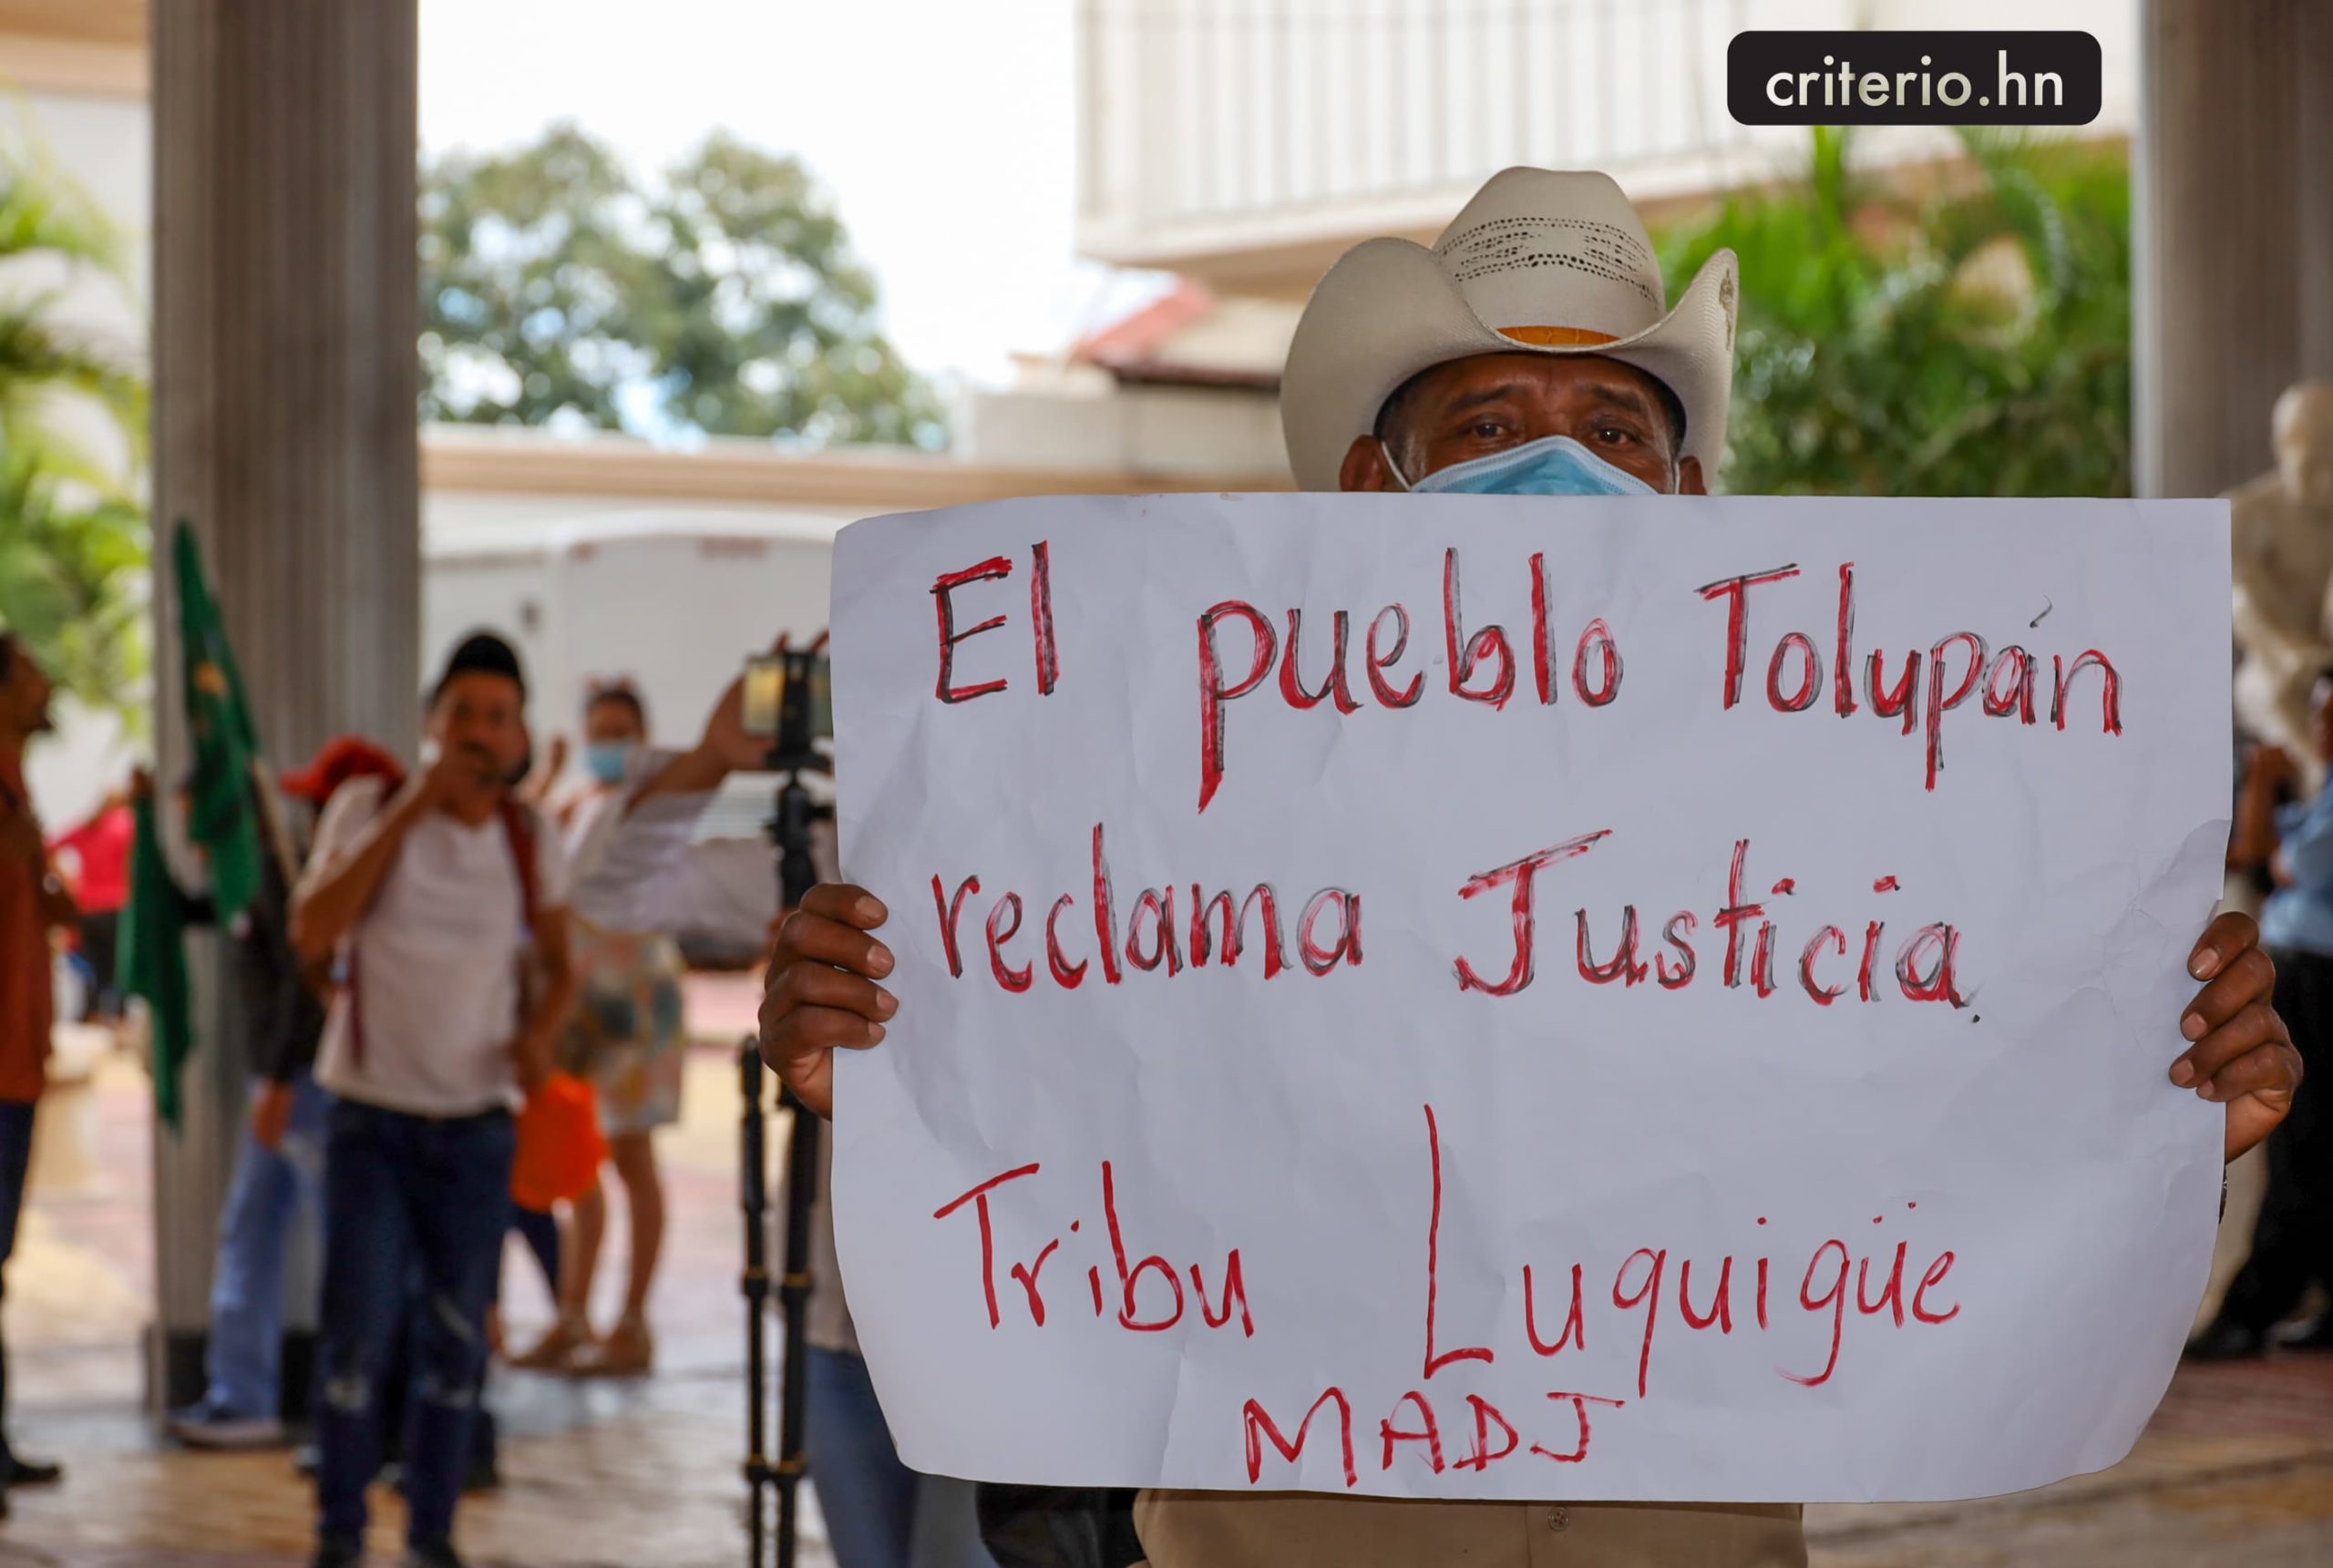 criterio.hn
El pueblo Tolupán
reclama Justicia.
Tribu Luquigüe
MADJ